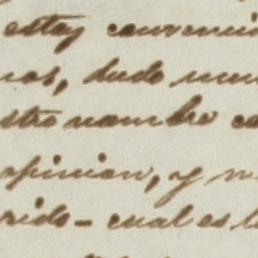 estoy convenci
nos, dudo muc
stro nombre co
opinion, y m
rido- cual es l